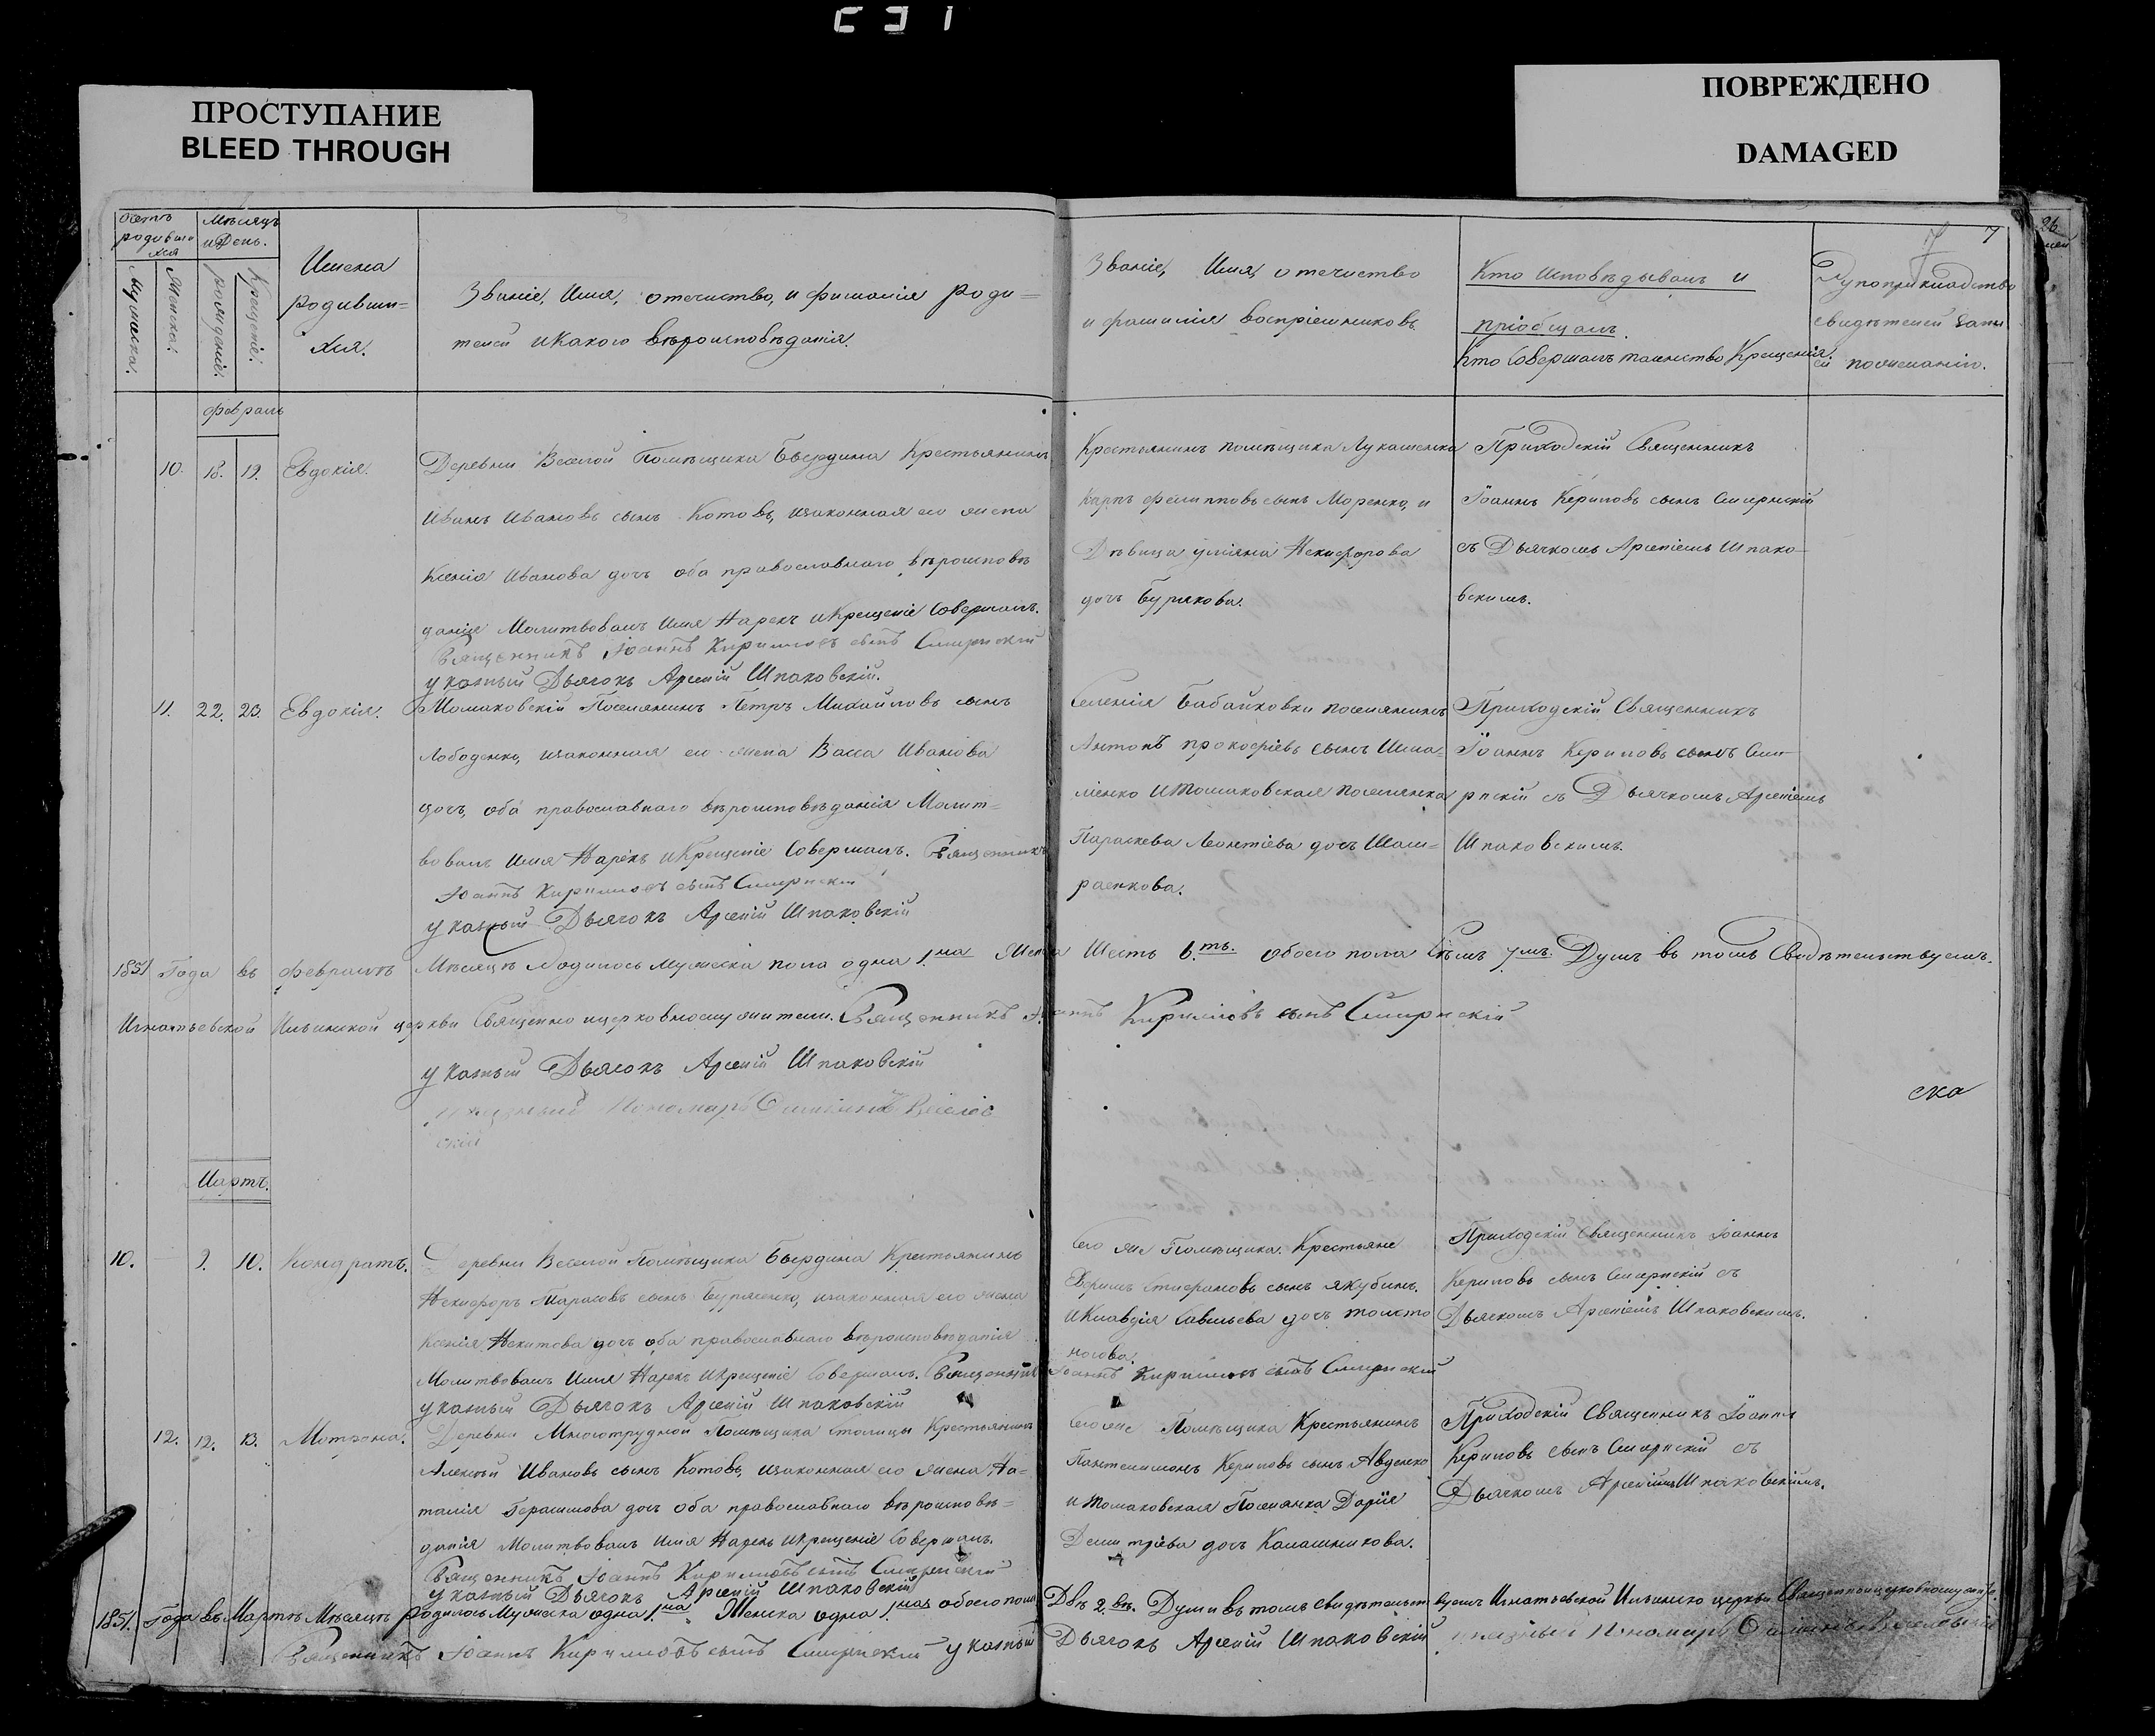 ПРОСТУПАНИЕ
BLEED THROUGH
ПОВРЕЖДЕНО
DAMAGED
7
26
Мѣсяцъ
и День.
Имена
родивши=
хся.
Званіе, Имя, отечество, и фамилія роди=
телей и какого вѣроисповѣданія.
Званіе, Имя, отечество
и фамилія воспріемниковъ
Кто исповѣдывалъ и
пріобщалъ.
Кто совершалъ таинство Крещенія.
свидѣтелей
Рожденіе.
Крещеніе.
февраль
10. 18. 19. Евдокія.
Деревни Веселой Помѣщика Крестьянинъ
Иванъ Ивановъ сынъ Котовъ, изаконная его жена
Ксенія Иванова дочь оба православнаго вѣроисповѣ
данія Молитвовалъ Имя Нарекъ и Крещеніе Совершалъ.
Священникъ Іоаннъ Кириловъ сынъ
указный Дьячокъ Арсеній Шпаковскій.
Крестьянинъ помѣщика Лукашенка
Карпъ филипповъ сынъ Моренко, и
Дѣвица Никифорова
дочь Бурякова.
Приходскій Священникъ
Іоаннъ Кериловъ сынъ
съ Дьячкомъ Арсеніемъ Шпако-
вскимъ.
11. 22. 23. Евдокія.
Томаковскій Поселянинъ Петръ Михайловъ сынъ
Лободенко, изаконная его жена Васса Иванова
дочь, оба православнаго вѣроисповѣданія Молит=
вовалъ Имя Нарекъ и Крещеніе Совершалъ. Священникъ
Іоаннъ Кириловъ сынъ
указный Дьячокъ Арсеній Шпаковскій
Селенія Бабайковки поселянинъ
Антонъ прокофіевъ сынъ
и Томаковская поселянка
Параскева Леонтіева дочь
Приходскій Священникъ
Іоаннъ Кериловъ сынъ
съ Дьячкомъ Арсеніемъ
Шпаковскимъ.
1851 Года въ февралѣ Мѣсяцѣ Родилось Мужеска пола одна 1.на Женска Шесть 6.ть. обоего пола Семь 7мь. Душъ въ томъ Свидѣтельствуемъ.
Игнатьевской Ильинской церкви Священно ицерковнослужители. Священникъ Іоаннъ Кириловъ сынъ
указный Дьячокъ Арсеній Шпаковскій
Пономарь
ска
Мартъ.
10. 9. 10. Кондратъ.
Деревни Веселой Помѣщика Крестьянинъ
Никифоръ Тарасовъ сынъ Буряченко, изаконная его жена
Ксенія Никитова дочь оба православнаго вѣроисповѣданія
Молитвовалъ Имя Нарекъ и Крещеніе Совершалъ. Священникъ Іоаннъ Кириловъ сынъ
указный Дьячокъ Арсеній Шпаковскій
Его же Помѣщика Крестьяне
Стефановъ сынъ Якубинъ.
и Клавдія Савельева дочь толсто
носова.
Приходскій Священникъ Іоаннъ
Кериловъ сынъ съ
Дьячкомъ Арсеніемъ Шпаковскимъ.
12. 12. 13. Мотрона.
Деревни Многотрудной Помѣщика Столицы Крестьянинъ
Алексѣй Ивановъ сынъ Котовъ, изаконная его жена На=
талія Герасимова дочь оба православнаго вѣроисповѣ=
данія Молитвовалъ Имя Нарекъ и Крещеніе Совершалъ.
Священникъ Іоаннъ Кириловъ сынъ
указный Дьячокъ Арсеній Шпаковскій
Его же Помѣщика Крестьянинъ
Пантелимонъ Кериловъ сынъ Авденко
и Томаковская Поселянка Дарія
Демитріева дочь Калашникова.
Приходскій Священникъ Іоаннъ
Кериловъ сынъ съ
Дьячкомъ Арсеніемъ Шпаковскимъ.
1851. Года въ Мартѣ Мѣсяцѣ родилось Мужеска одна 1.на Женска одна 1.на обоего пола Двѣ 2.вѣ. Души въ томъ свидѣтельствуемъ Игнатьевской Ильинской церкви
Священникъ Іоаннъ Кириловъ сынъ указный Дьячокъ Арсеній Шпаковскій Пономарь